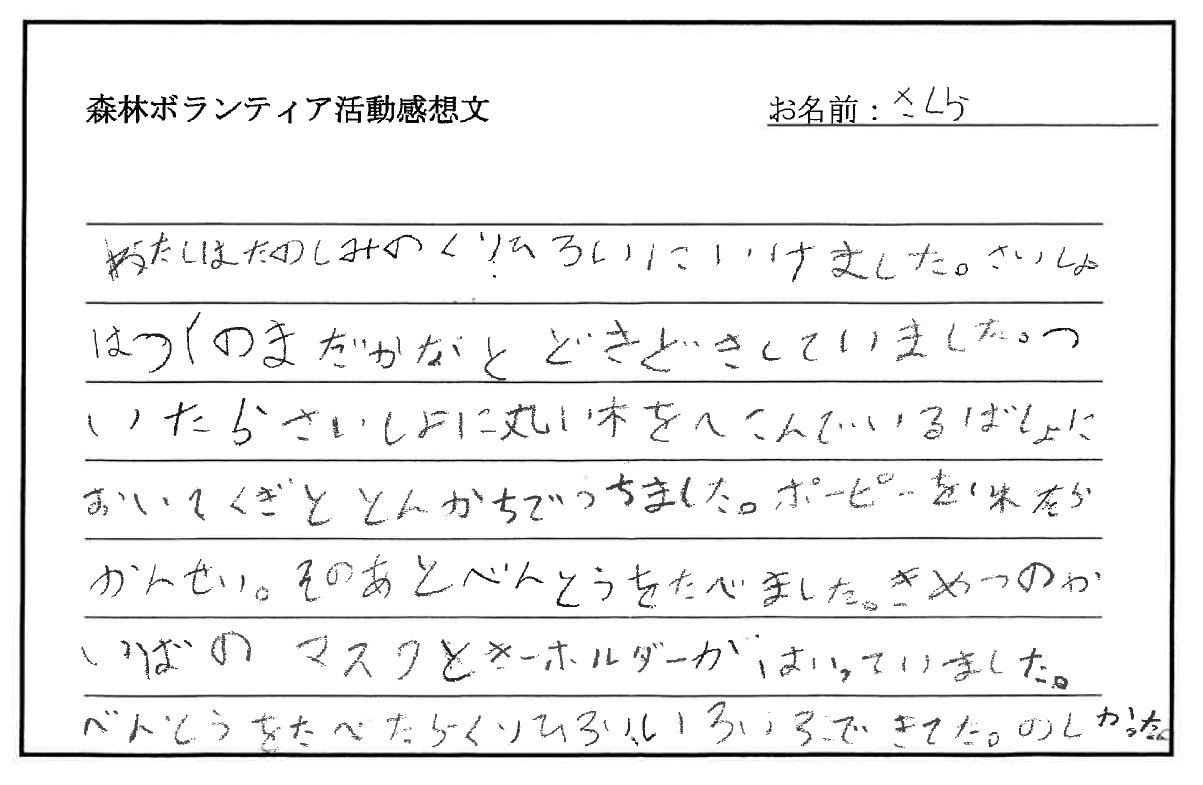 森林ボランティア活動感想文
お名前：さくら
わたしはたのしみのくりひろいにいけました。さいしょ
はつくのまだかなと どきどきしていました。つ
いたらさいしょに丸い木をへこんでいるばしょに
おいてくぎととんかちでうちました。ポピーを
かんせい。そのあとべんとうをたべました。きめつのか
いばの マスクときーホルダーがはいっていました。
べんとうをたべたらくりひろいいろいろできてた。のしかった